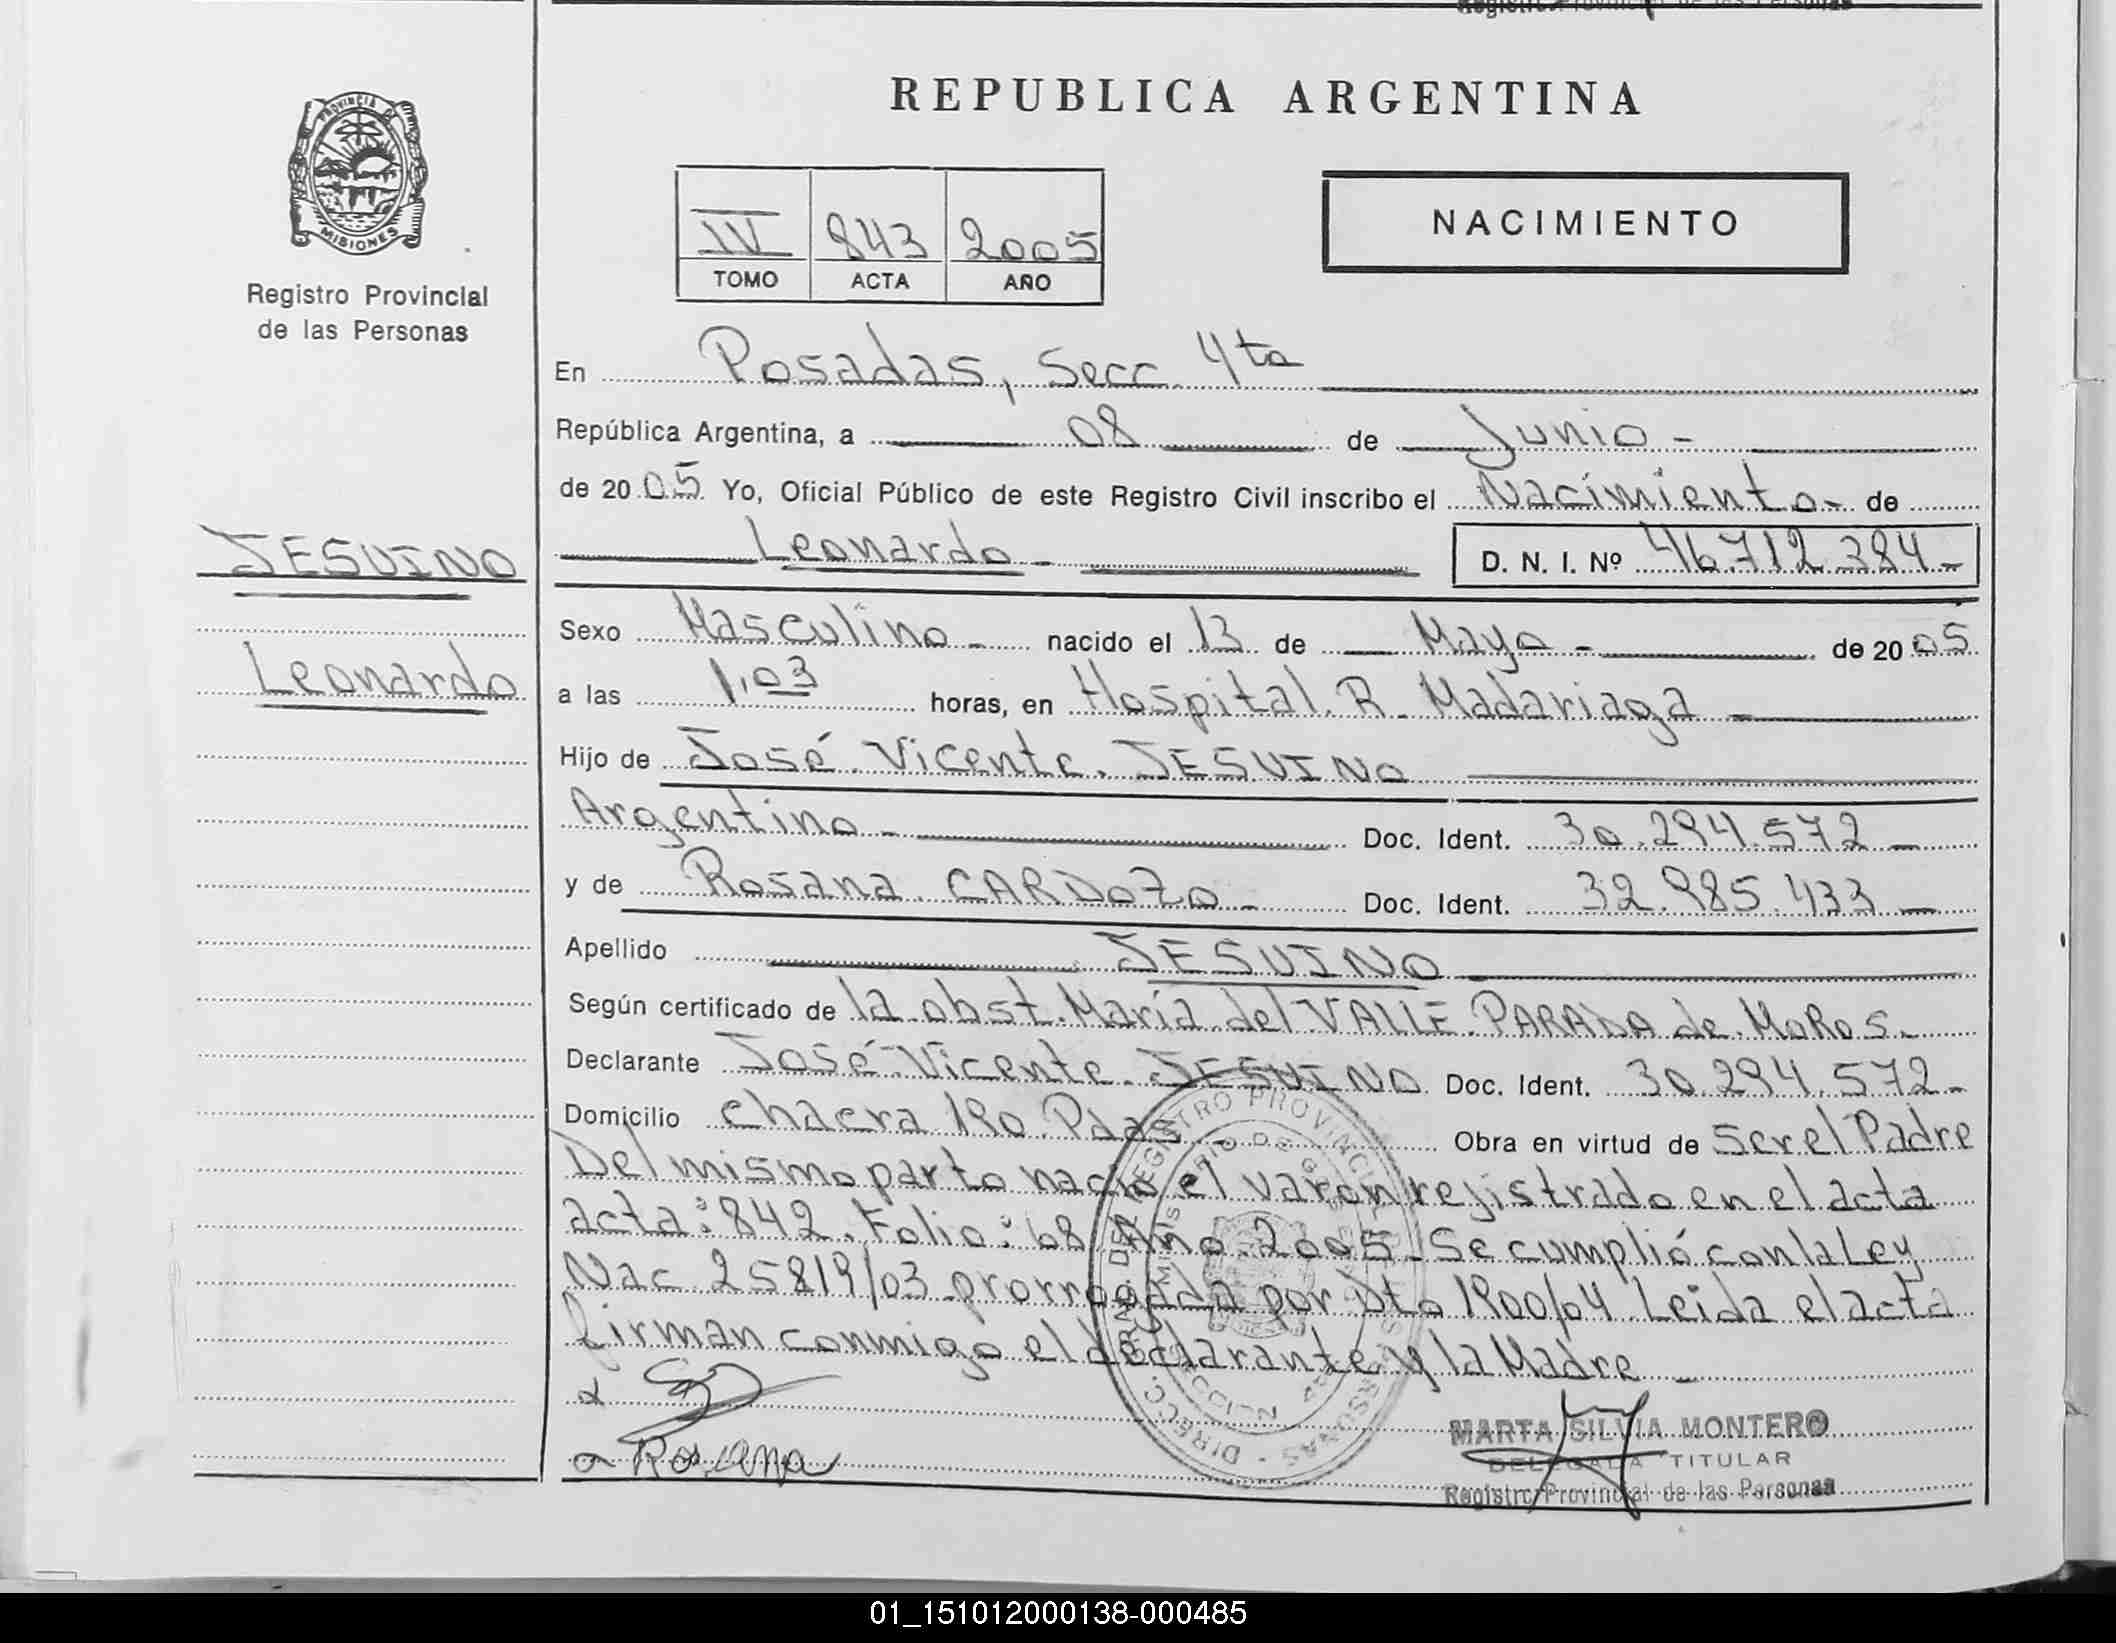 Registro Provincial de las Personas
REPUBLICA ARGENTINA
PROVINCIA DE
MISIONES
Registro Provincial
de las Personas
IV 843 2005
TOMO ACTA AÑO
NACIMIENTO
En Posadas, Secc. 4ta
República Argentina, a 08 de Junio -
de 2005 Yo, Oficial Público de este Registro Civil inscribo el Nacimiento - de
JESUINO
Leonardo - D. N. I. Nº 46.712.384 -
Sexo Masculino - nacido el 13 de Mayo - de 2005
Leonardo
a las 1,03 horas, en Hospital R. Madariaga -
Hijo de José Vicente JESUINO
Argentino - Doc. Ident. 30.294.572 -
y de Rosana CARDOZO - Doc. Ident. 32.985.433 -
Apellido JESUINO
Según certificado de la obst. María del VALLE PARADA de MoRoS.
Declarante José Vicente JESUINO Doc. Ident. 30.294.572 -
Domicilio chacra 190 Pdas - Obra en virtud de Ser el Padre
Del mismo parto nació el varon rejistrado en el acta
acta: 842. Folio: 68 Año 2005 - Se cumplió con la Ley
Nac 25819/03 prorrogada por Dto 1900/04 Leida el acta
firman conmigo el declarante y la Madre -
Rosana
MARTA SILVIA MONTERO
DELEGADA TITULAR
Registro Provincial de las Personas
01_151012000138-000485